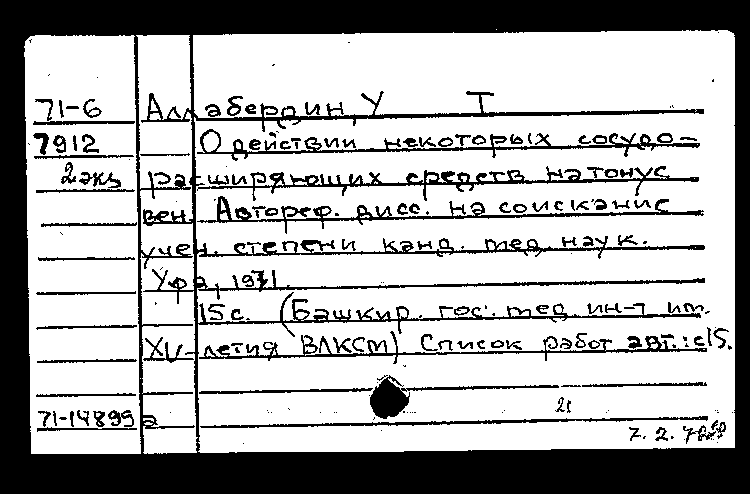 71-6 Аллабердин, У Т
7912 О действии некоторых сосудо-
2 экз расширяющих средств на тонус
вен. Автореф. дисс. на соискание
учен. степени канд. мед. наук.
Уфа, 1971.
15 с. (Башкир. гос. мед. ин-т им.
XV-летия ВЛКСМ) Список работ авт.: с 15.
21
71-14899 а
7. 2.